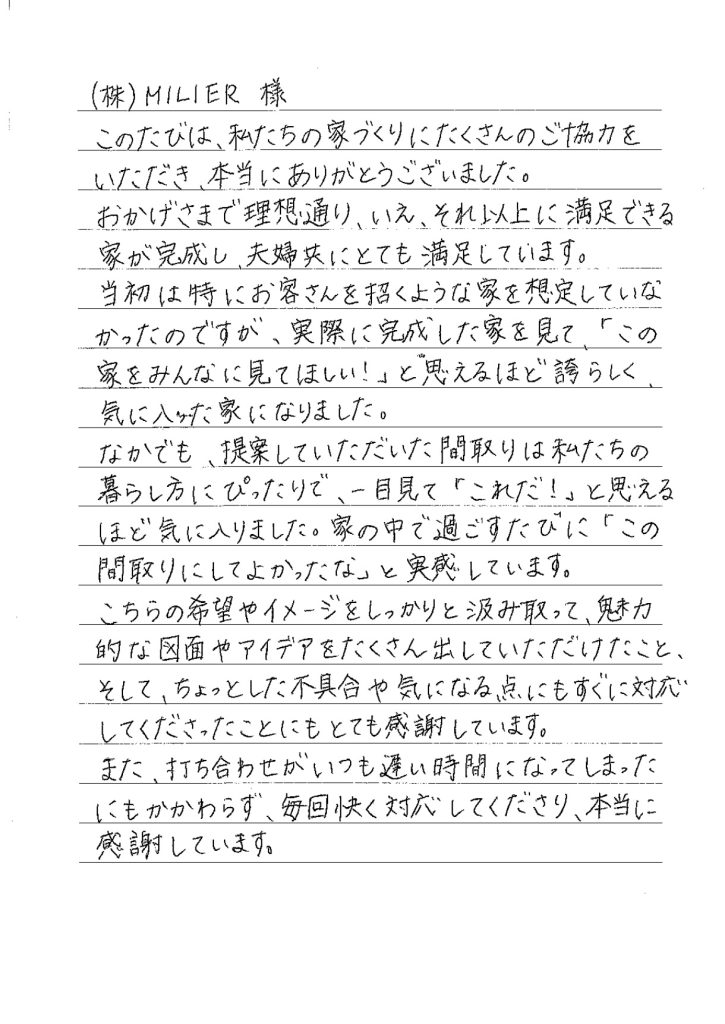 (株)MILIER 様
このたびは、私たちの家づくりにたくさんのご協力を
いただき、本当にありがとうございました。
おかげさまで理想通り、いえ、それ以上に満足できる
家が完成し、夫婦共にとても満足しています。
当初は特にお客さんを招くような家を想定していな
かったのですが、実際に完成した家を見て、「この
家をみんなに見てほしい!」と思えるほど誇らしく、
気に入った家になりました。
なかでも、提案していただいた間取りは私たちの
暮らし方にぴったりで、一目見て「これだ!」と思える
ほど気に入りました。家の中で過ごすたびに「この
間取りにしてよかったな」と実感しています。
こちらの希望やイメージをしっかりと汲み取って、魅力
的な図面やアイデアをたくさん出していただけたこと、
そして、ちょっとした不具合や気になる点にもすぐに対応
してくださったことにもとても感謝しています。
また、打ち合わせがいつも遅い時間になってしまった
にもかかわらず、毎回快く対応してくださり、本当に
感謝しています。